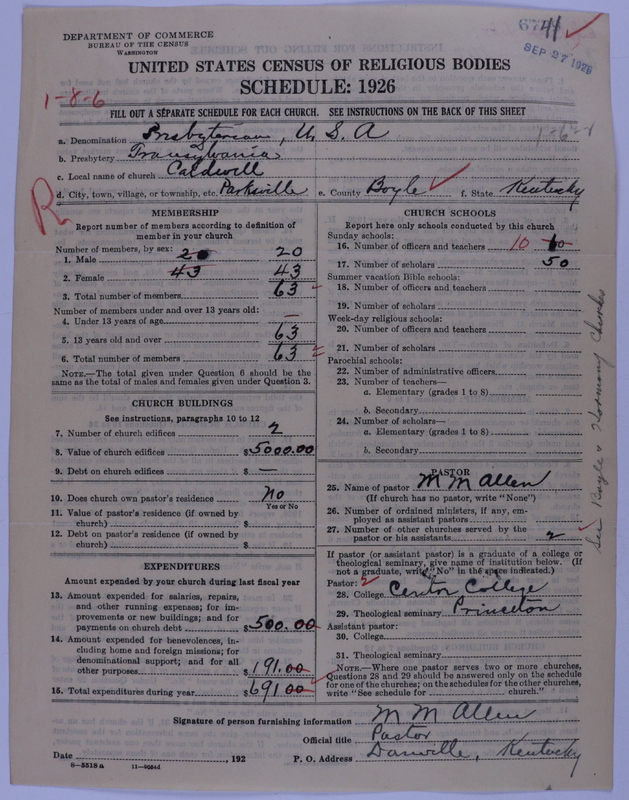 6741
SEP 27 1928
DEPARTMENT OF COMMERCE
BUREAU OF THE CENSUS
WASHINGTON
UNITED STATES CENSUS OF RELIGIOUS BODIES
SCHEDULE: 1926
1-8-6
FILL OUT A SEPARATE SCHEDULE FOR EACH CHURCH. SEE INSTRUCTIONS ON THE BACK OF THIS SHEET
a. Denomination Presbyterian, U. S. A
b. Presbytery Transylvania
c. Local name of church Caldwell
d. City, town, village, or township, etc. Parksville e. County Boyle f. State Kentucky
R
MEMBERSHIP
Report number of members according to definition of
member in your church
Number of members, by sex:
1. Male 20 20
2. Female 43 43
3. Total number of members 63
Number of members under and over 13 years old:
4. Under 13 years of age —
5. 13 years old and over 63
6. Total number of members 63
NOTE.—The total given under Question 6 should be the
same as the total of males and females given under Question 3.
CHURCH BUILDINGS
See instructions, paragraphs 10 to 12
7. Number of church edifices 2
8. Value of church edifices $5000.00
9. Debt on church edifices $ —
10. Does church own pastor's residence No
Yes or No
11. Value of pastor's residence (if owned by
church) $
12. Debt on pastor's residence (if owned by
church) $
EXPENDITURES
Amount expended by your church during last fiscal year
13. Amount expended for salaries, repairs,
and other running expenses; for im-
provements or new buildings; and for
payments on church debt $500.00
14. Amount expended for benevolences, in-
cluding home and foreign missions; for
denominational support; and for all
other purposes $191.00
15. Total expenditures during year $691.00
CHURCH SCHOOLS
Report here only schools conducted by this church
Sunday schools:
16. Number of officers and teachers 10 10
17. Number of scholars 50
Summer vacation Bible schools:
18. Number of officers and teachers
19. Number of scholars
Week-day religious schools:
20. Number of officers and teachers
21. Number of scholars
Parochial schools:
22. Number of administrative officers
23. Number of teachers—
a. Elementary (grades 1 to 8)
b. Secondary
24. Number of scholars—
a. Elementary (grades 1 to 8)
b. Secondary
PASTOR
25. Name of pastor M M Allen
(If church has no pastor, write "None")
26. Number of ordained ministers, if any, em-
ployed as assistant pastors
27. Number of other churches served by the
pastor or his assistants 2
If pastor (or assistant pastor) is a graduate of a college or
theological seminary, give name of institution below. (If
not a graduate, write "No" in the space indicated.)
Pastor: 2
28. College Center College
29. Theological seminary Princeton
Assistant pastor:
30. College
31. Theological seminary
NOTE.—Where one pastor serves two or more churches,
Questions 28 and 29 should be answered only on the schedule
for one of the churches; on the schedules for the other churches,
write "See schedule for church."
See Boyle & Harmony Churches
Signature of person furnishing information M M Allen
Official title Pastor
Date , 192 P. O. Address Danville, Kentucky
8-5518 a 11-9084d